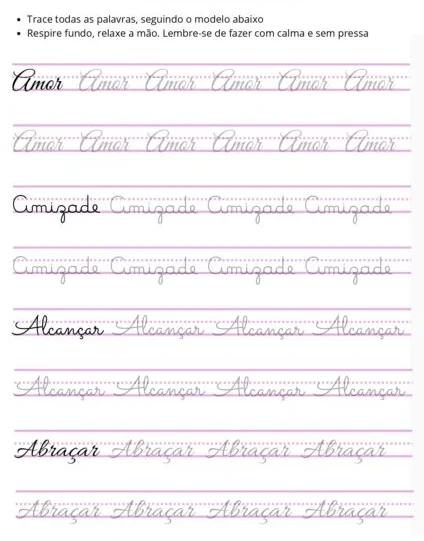 Trace todas as palavras, seguindo o modelo abaixo
Respire fundo, relaxe a mão. Lembre-se de fazer com calma e sem pressa
Amor Amor Amor Amor Amor Amor
Amor Amor Amor Amor Amor Amor
Amizade Amizade Amizade Amizade
Amizade Amizade Amizade Amizade
Alcançar Alcançar Alcançar Alcançar
Alcançar Alcançar Alcançar Alcançar
Abraçar Abraçar Abraçar Abraçar
Abraçar Abraçar Abraçar Abraçar